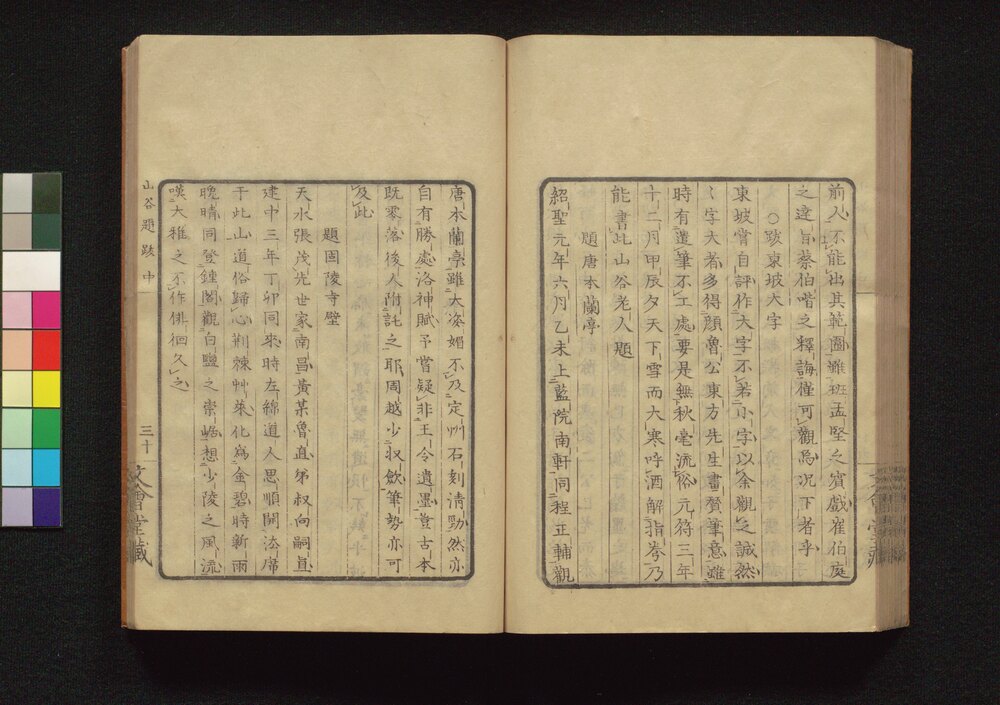 前人不能出其範圍雖班孟堅之賓戲崔伯庭
之達旨蔡伯喈之釋誨僅可觀焉況下者乎
○跋東坡大字
東坡嘗自評作大字不若小字以余觀之誠然
〻字大者多得顔魯公東方先生畫贊筆意雖
時有遣筆不工處要是無秋毫流俗元符三年
十二月甲辰夕天下雪而大寒呼酒解指拳乃
能書此山谷老人題
題唐本蘭亭
紹聖元年六月乙未上藍院南軒同程正輔觀
唐本蘭亭雖大姿媚不及定州石刻清勁然亦
自有勝處洛神賦予嘗疑非王令遺墨豈古本
既零落後人附託之耶周越少収斂筆勢亦可
及此
題固陵寺壁
天水張茂先世家南昌黃某魯直弟叔向嗣直
建中三年丁卯同來時左綿道人思順開法席
于此山道俗歸心荆棘艸萊化爲金碧時新雨
晚晴同登鐘閣觀白鹽之崇崛想少陵之風流
嘆大雅之不作俳徊久之
山谷題跋中
三十
文會堂藏